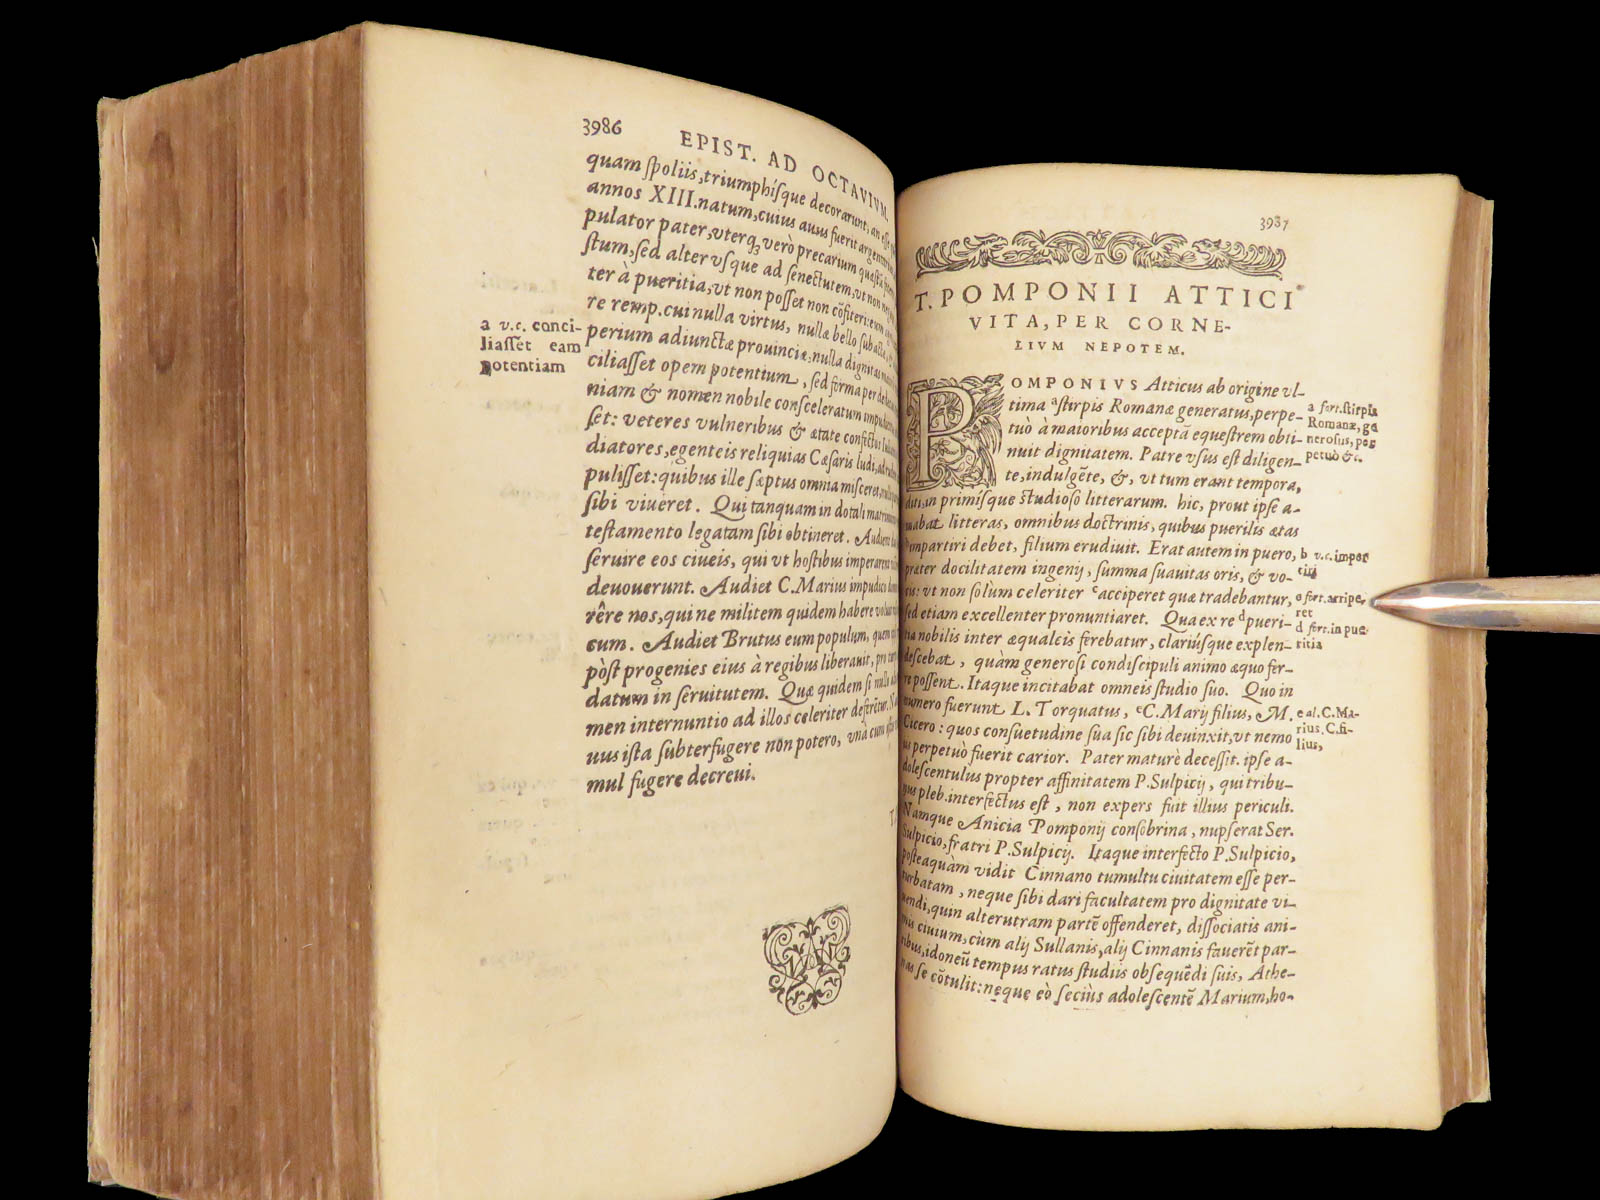 3986
EPIST. AD OCTAVIVM.
quam ſpoliis,triumphíſque decorarunt, an eſſe
annos XIII.natum,cuius auus fuerit argentarius
pulator pater,vterq; verò precarium quæſtũ
ſtum,ſed alter vſque ad ſenectutem,vt non
ter à pueritia,vt non poſſet non cõfiteri:eum
re remp.cui nulla virtus, nullæ bello ſubactæ,
perium adiunctæ prouinciæ,nulla dignitas
ciliaſſet opem potentium, ſed forma per
niam & nomen nobile conſceleratum
ſet: veteres vulneribus & ætate confectos
diatores,egenteis reliquias Cæſaris ludi,
puliſſet:quibus ille ſæptus omnia miſceret,
ſibi viueret. Qui tanquam in dotali
teſtamento legatam ſibi obtineret. Audient
ſeruire eos ciueis, qui vt hoſtibus imperarent
deuouerunt. Audiet C.Marius impudico
rêre nos,qui ne militem quidem habere
cum. Audiet Brutus eum populum, quem
pòſt progenies eius à regibus liberauit, pro
datum in ſeruitutem. Quæ quidem ſi nullo
men internuntio ad illos celeriter deferẽtur.
uus iſta ſubterfugere non potero, vnà cum
mul fugere decreui.
a v.c. conci-
liaſſet eam
potentiam
3987
T. POMPONII ATTICI
VITA, PER CORNE-
LIVM NEPOTEM.
POMPONIVS Atticus ab origine vl-
tima ᵃſtirpis Romanæ generatus,perpe-
tuò à maioribus acceptã equeſtrem obti-
nuit dignitatem. Patre vſus eſt diligen-
te,indulgẽte, &, vt tum erant tempora,
diti,in primíſque ſtudioſo litterarum. hic, prout ipſe a-
mabat litteras, omnibus doctrinis, quibus puerilis ætas
ᵇimpartiri debet, filium erudiuit. Erat autem in puero,
præter docilitatem ingenij, ſumma ſuauitas oris, & vo-
cis: vt non ſolùm celeriter ᶜacciperet quæ tradebantur,
ſed etiam excellenter pronuntiaret. Qua ex re ᵈpueri-
tia nobilis inter æqualeis ferebatur, clariúſque explen-
deſcebat, quàm generoſi condiſcipuli animo æquo fer-
re poſſent. Itaque incitabat omneis ſtudio ſuo. Quo in
numero fuerunt L. Torquatus, ᵉC.Marij filius, M.
Cicero: quos conſuetudine ſua ſic ſibi deuinxit,vt nemo
iis perpetuò fuerit carior. Pater maturè deceſſit. ipſe a-
doleſcentulus propter affinitatem P.Sulpicij, qui tribu-
nus pleb.interfectus eſt, non expers fuit illius periculi.
Namque Anicia Pomponij conſobrina, nupſerat Ser.
Sulpicio,fratri P.Sulpicij. Itaque interfecto P.Sulpicio,
poſteaquàm vidit Cinnano tumultu ciuitatem eſſe per-
turbatam, neque ſibi dari facultatem pro dignitate vi-
uendi,quin alterutram partẽ offenderet, diſſociatis ani-
mis ciuium,cùm alij Sullanis,alij Cinnanis fauerẽt par-
tibus,idoneũ tempus ratus ſtudiis obſequẽdi ſuis, Athe-
nas ſe cõtulit:neque eò ſeciùs adoleſcentẽ Marium,ho-
a fort.ſtirpis
Romanæ, ge
neroſus, per
petuò &c.
b v.c. imper
tiri
c fort.arripe,
ret
d fort.in pue
ritia
e al.C.Ma-
rius.C.fi-
lius,